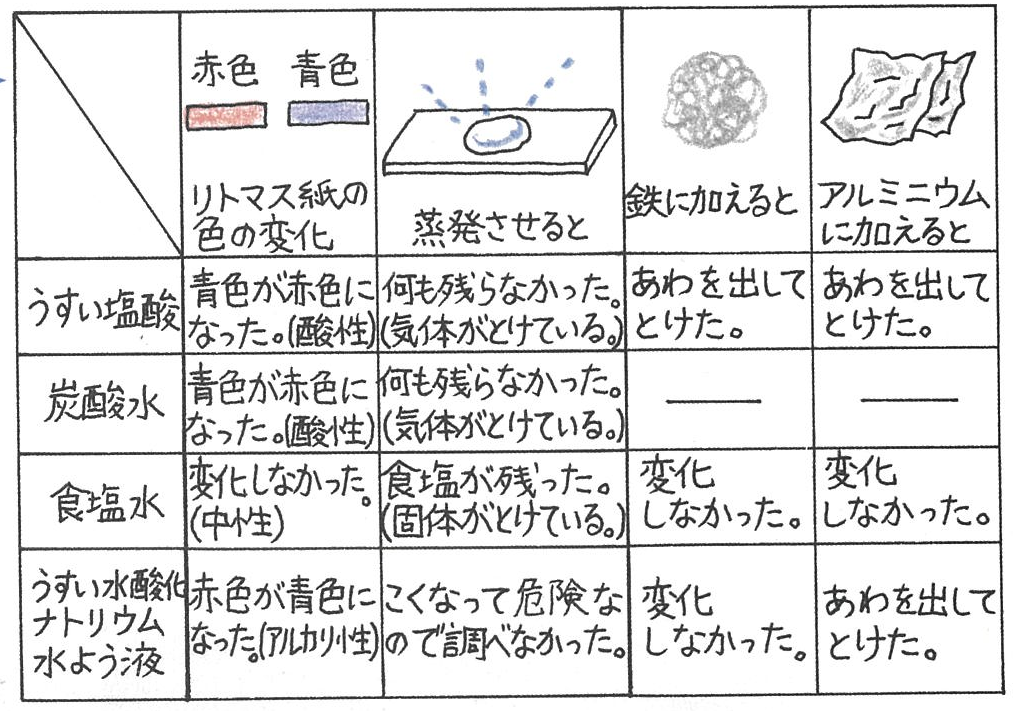 赤色 青色
リトマス紙の
色の変化
蒸発させると
鉄に加えると
アルミニウム
に加えると
うすい塩酸
青色が赤色に
なった。(酸性)
何も残らなかった。
(気体がとけている。)
あわを出して
とけた。
あわを出して
とけた。
炭酸水
青色が赤色に
なった。(酸性)
何も残らなかった。
(気体がとけている。)
食塩水
変化しなかった。
(中性)
食塩が残った。
(固体がとけている。)
変化
しなかった。
変化
しなかった。
うすい水酸化
ナトリウム
水よう液
赤色が青色に
なった。(アルカリ性)
こくなって危険な
ので調べなかった。
変化
しなかった。
あわを出して
とけた。